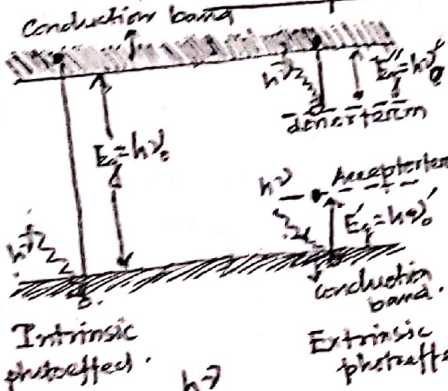 Conduction band
hν
E''g=hν''0
Eg=hν0
donor term
hν
Acceptor ter
E'g=hν'0
hν
conduction
band.
Intrinsic
photoeffect.
Extrinsic
photoeffe
hν